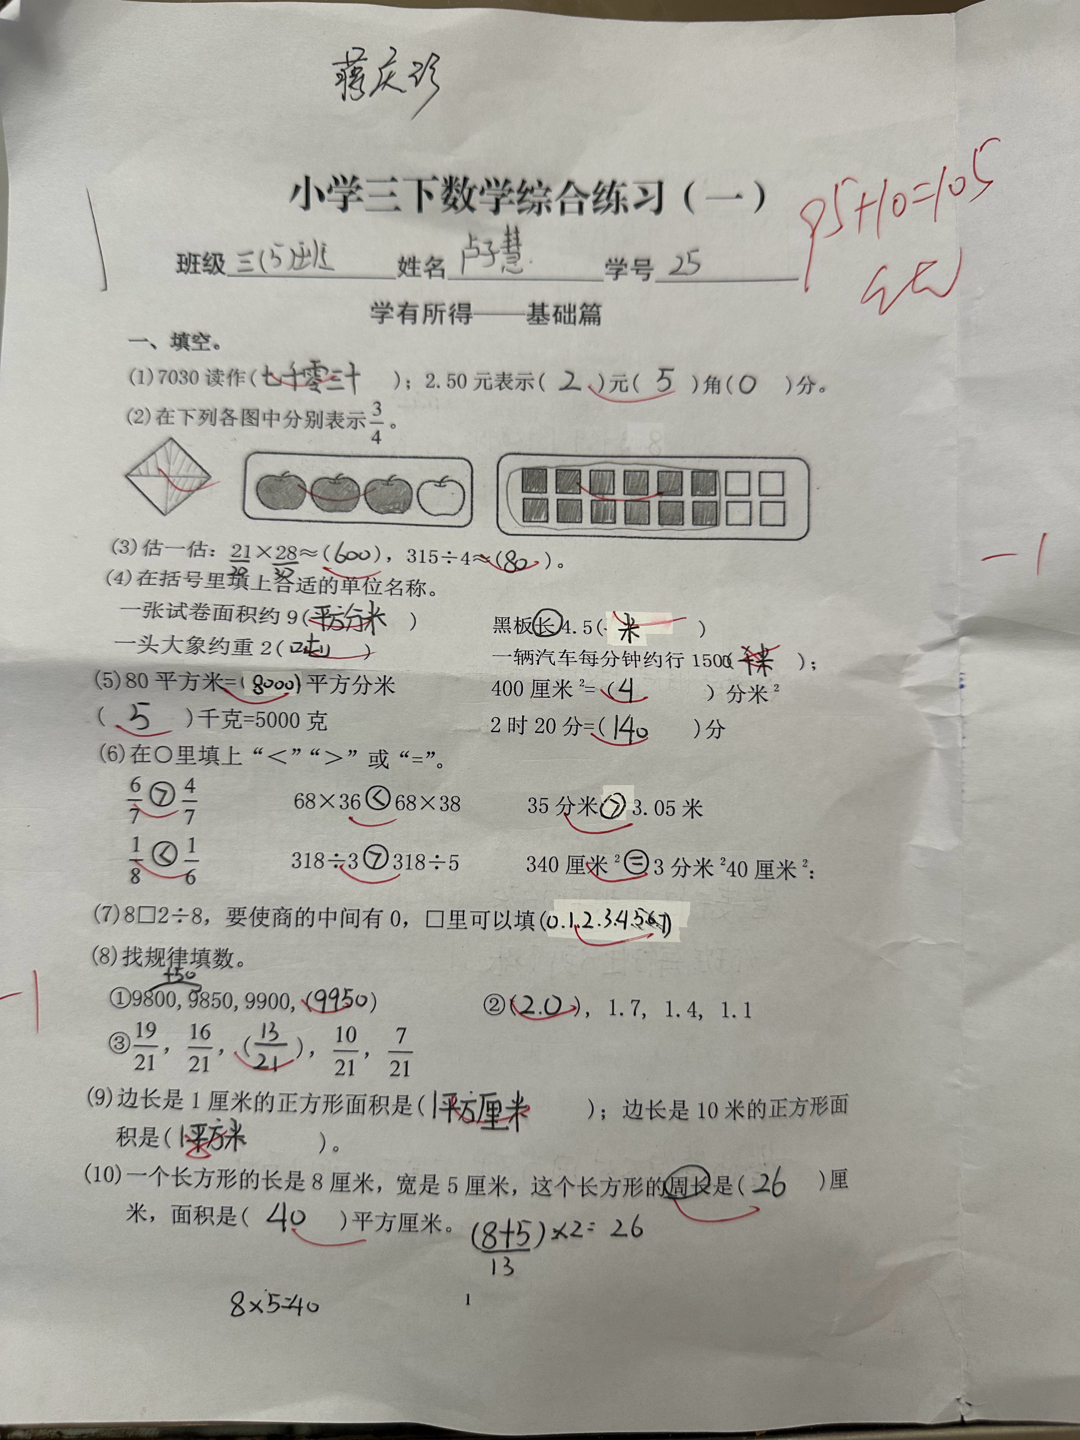 蒋庆珍
小学三下数学综合练习（一）
95+10=105
班级 三(5)班 姓名 卢子慧 学号 25
学有所得——基础篇
一、填空。
(1)7030 读作(七千零三十)；2.50 元表示(2)元(5)角(0)分。
(2)在下列各图中分别表示3/4。
(3)估一估：21×28≈(600)，315÷4≈(80)。
20 30
(4)在括号里填上合适的单位名称。
一张试卷面积约 9(平方分米) 黑板长 4.5(米)
一头大象约重 2(吨) 一辆汽车每分钟约行 1500( )；
(5)80 平方米=(8000)平方分米 400 厘米²=(4)分米²
(5)千克=5000 克 2 时 20 分=(140)分
(6)在○里填上“＜”“＞”或“=”。
6/7 > 4/7 68×36 < 68×38 35 分米 > 3.05 米
1/8 < 1/6 318÷3 > 318÷5 340 厘米² = 3 分米²40 厘米²；
(7)8□2÷8，要使商的中间有 0，□里可以填(0.1.2.3.4.5.6.7)
(8)找规律填数。
+50
①9800, 9850, 9900, (9950) ②(2.0)，1.7，1.4，1.1
③19/21，16/21，(13/21)，10/21，7/21
(9)边长是 1 厘米的正方形面积是(1平方厘米)；边长是 10 米的正方形面
积是(1平方米)。
(10)一个长方形的长是 8 厘米，宽是 5 厘米，这个长方形的周长是(26)厘
米，面积是(40)平方厘米。 (8+5)×2=26
13
8×5=40
1
-1
-1